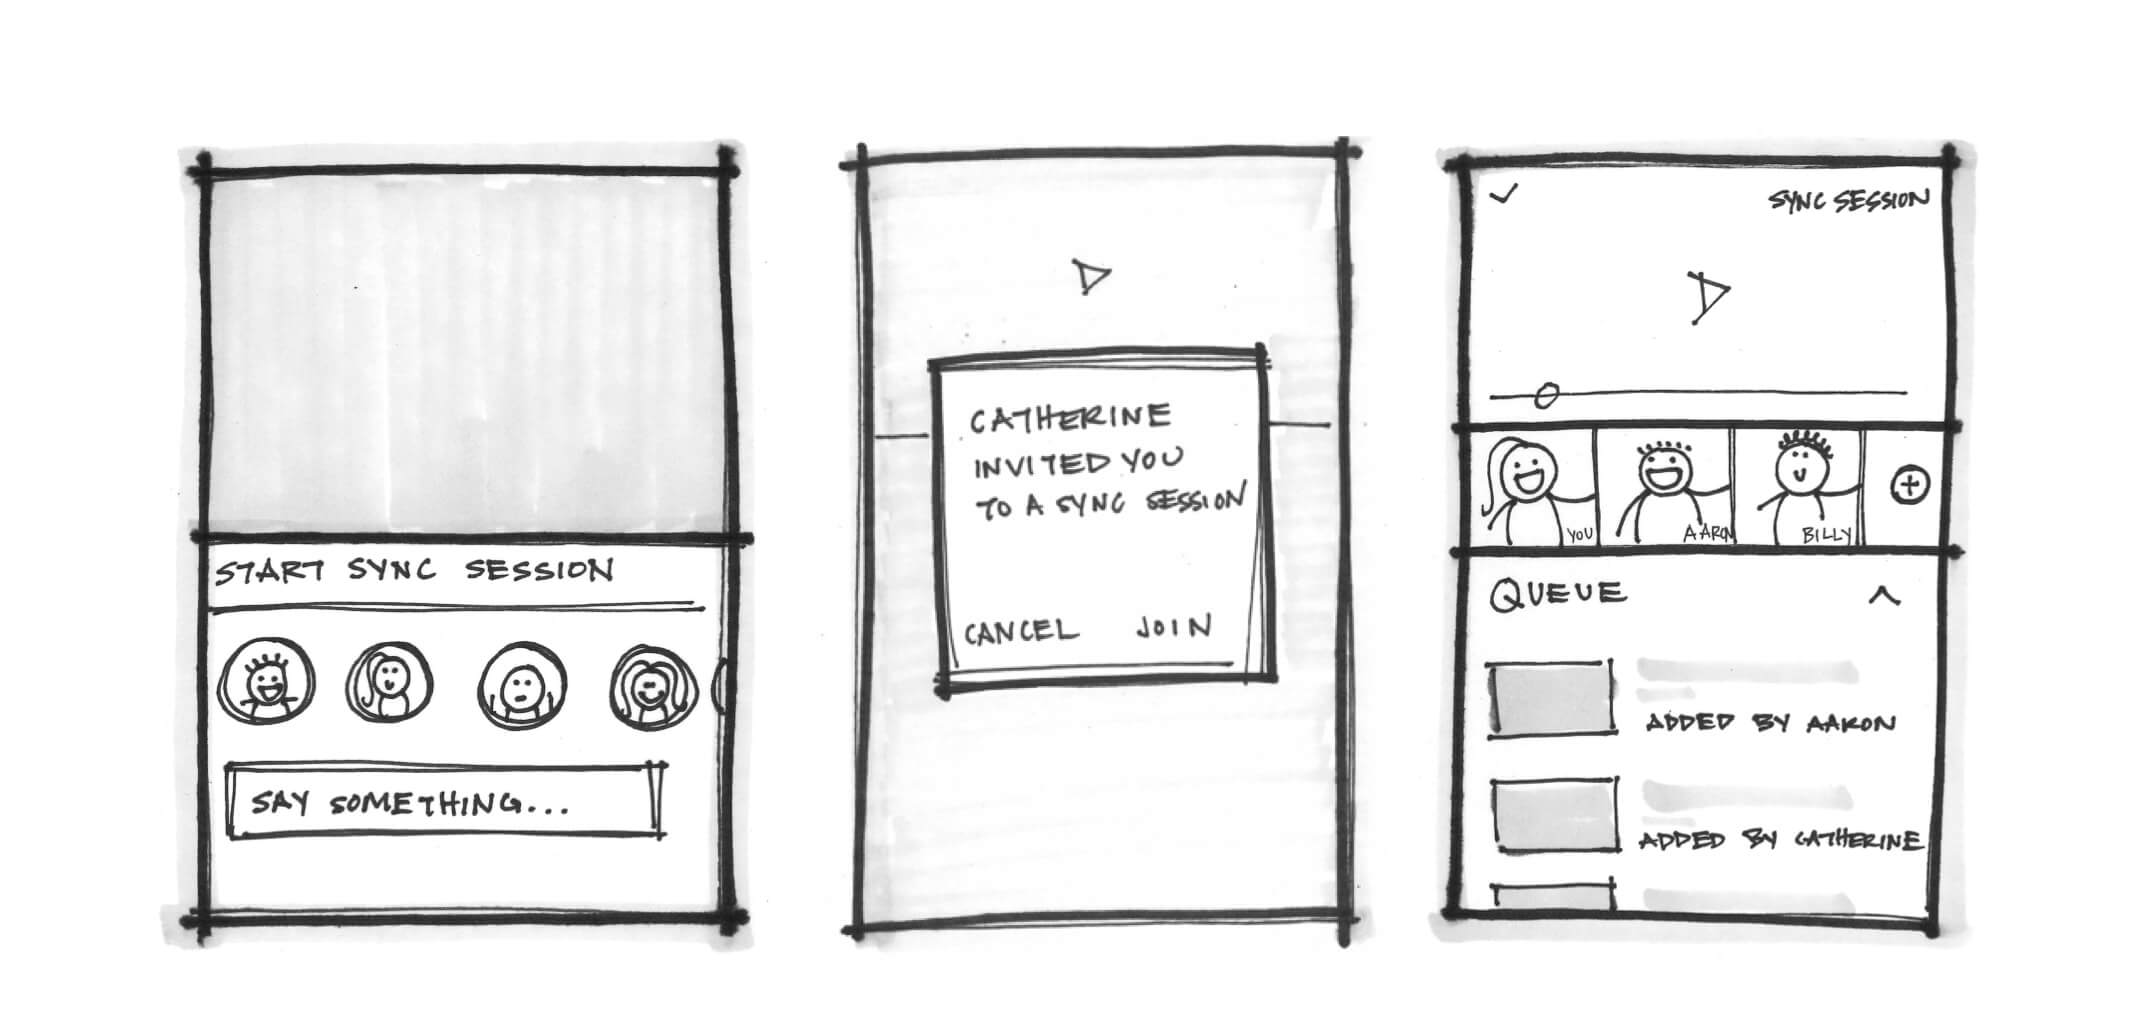 START SYNC SESSION
SAY SOMETHING...
CATHERINE
INVITED YOU
TO A SYNC SESSION
CANCEL JOIN
SYNC SESSION
YOU AARON BILLY
QUEUE
ADDED BY AARON
ADDED BY CATHERINE